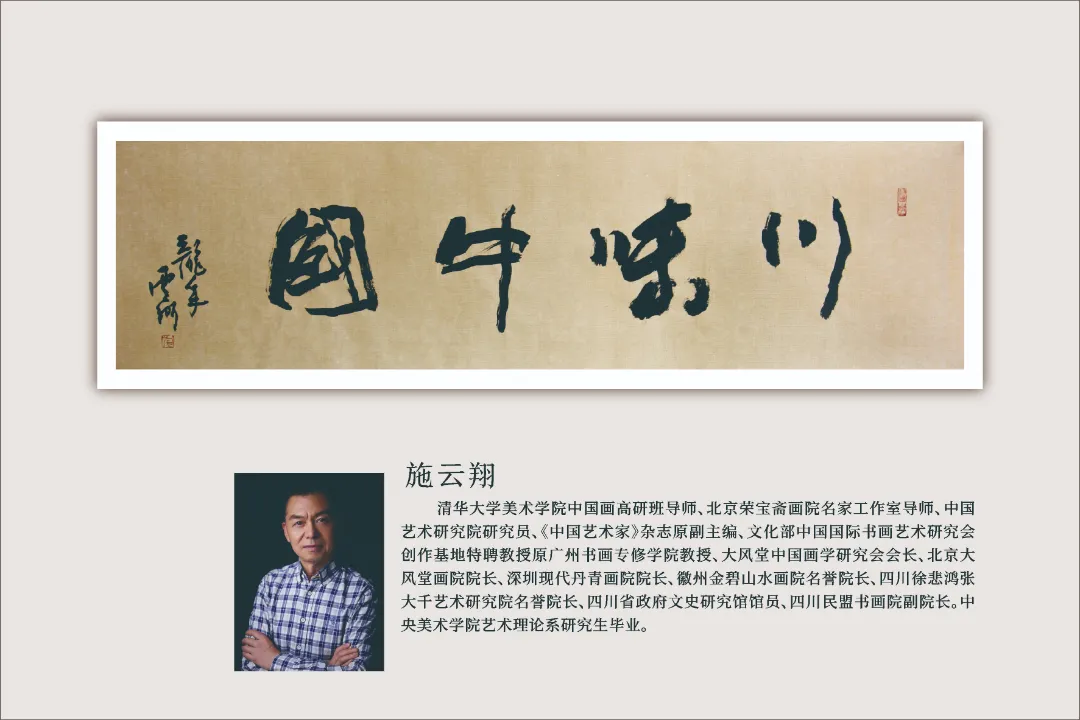 川味中國
龍年
雲翔
施云翔
清华大学美术学院中国画高研班导师、北京荣宝斋画院名家工作室导师、中国
艺术研究院研究员、《中国艺术家》杂志原副主编、文化部中国国际书画艺术研究会
创作基地特聘教授原广州书画专修学院教授、大风堂中国画学研究会会长、北京大
风堂画院院长、深圳现代丹青画院院长、徽州金碧山水画院名誉院长、四川徐悲鸿张
大千艺术研究院名誉院长、四川省政府文史研究馆馆员、四川民盟书画院副院长。中
央美术学院艺术理论系研究生毕业。